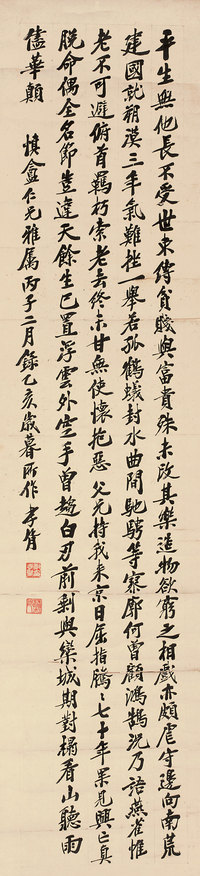 平生無他長不受世束縛貧賤與富貴殊未改其樂造物欲窮之相戲亦頗虐守邊向南荒
建國託朔漠三年氣難挫一舉若孤鶴蟻封水曲間馳騁等寥廓何曾顧鴻鵠況乃語燕雀惟
老不可避俯首羈朽索老去終未甘無使懷抱惡 父兄持我來京日屈指騰〻七十年果見興亡真
脫命偶全名節豈違天餘生已置浮雲外空手曾趨白刃前剩與欒城期對榻看山聽雨
儘華顛 慎盦仁兄雅屬丙子二月錄乙亥歲暮所作 孝胥